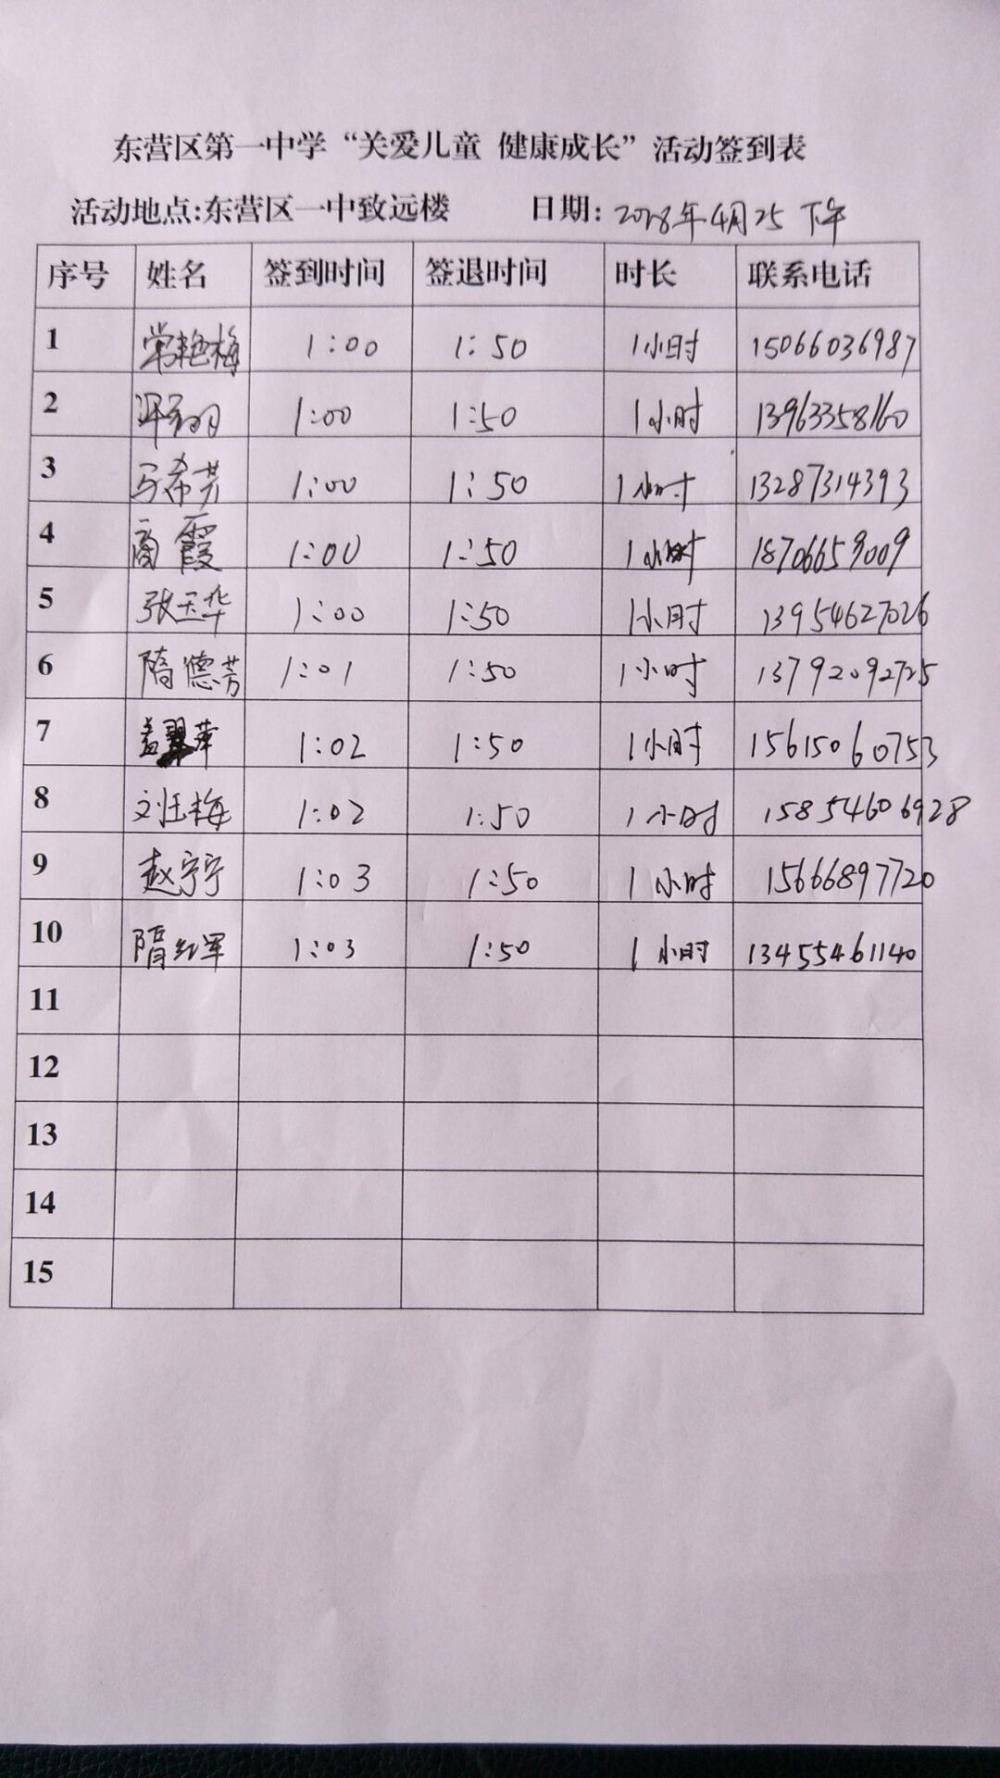 东营区第一中学“关爱儿童 健康成长”活动签到表
活动地点:东营区一中致远楼 日期: 2018年4月25 下午
序号 姓名 签到时间 签退时间 时长 联系电话
1 常艳梅 1:00 1:50 1小时 15066036987
2 1:00 1:50 1小时 13963358160
3 马希芳 1:00 1:50 1小时 13287314393
4 商霞 1:00 1:50 1小时 18706659009
5 张玉华 1:00 1:50 1小时 13954627026
6 隋德芳 1:01 1:50 1小时 13792092725
7 盖翠萍 1:02 1:50 1小时 15615060753
8 刘玉梅 1:02 1:50 1小时 15854606928
9 赵宁宁 1:03 1:50 1小时 15666897720
10 隋红军 1:03 1:50 1小时 13455461140
11
12
13
14
15